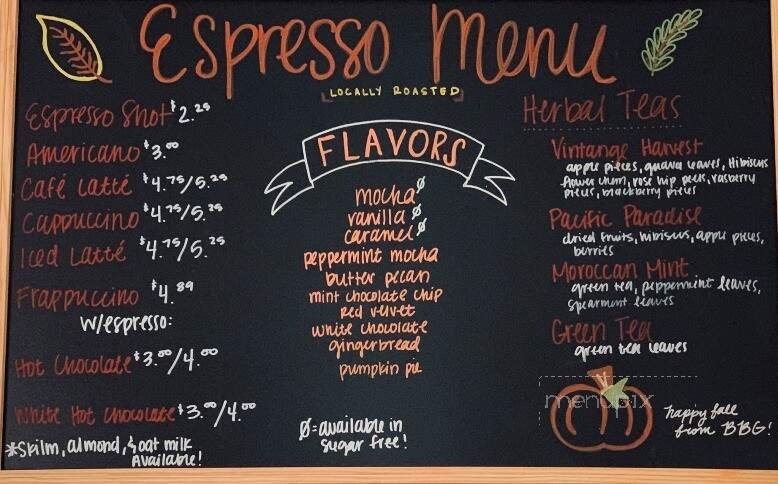 Espresso Menu
LOCALLY ROASTED
Espresso Shot $2.25
Americano $3.00
Café Latté $4.75/5.25
Cappuccino $4.75/5.25
Iced Latté $4.75/5.25
Frappuccino $4.89
w/espresso:
Hot Chocolate $3.00/4.00
White Hot Chocolate $3.00/4.00
*Skilm, almond, & oat milk
Available!
FLAVORS
mocha Ø
vanilla Ø
caramel Ø
peppermint mocha
butter pecan
mint chocolate chip
red velvet
white chocolate
gingerbread
pumpkin pie
Ø=available in
sugar free!
Herbal Teas
Vintange Harvest
apple pieces, guava leaves, Hibiscus
flower chem, rose hip peels, rasberry
pieces, blackberry pieces
Pacific Paradise
dried fruits, hibiscus, apple pieces,
berries
Moroccan Mint
green tea, peppermint leaves,
spearmint leaves
Green Tea
green tea leaves
menupix
happy fall
from BBG!